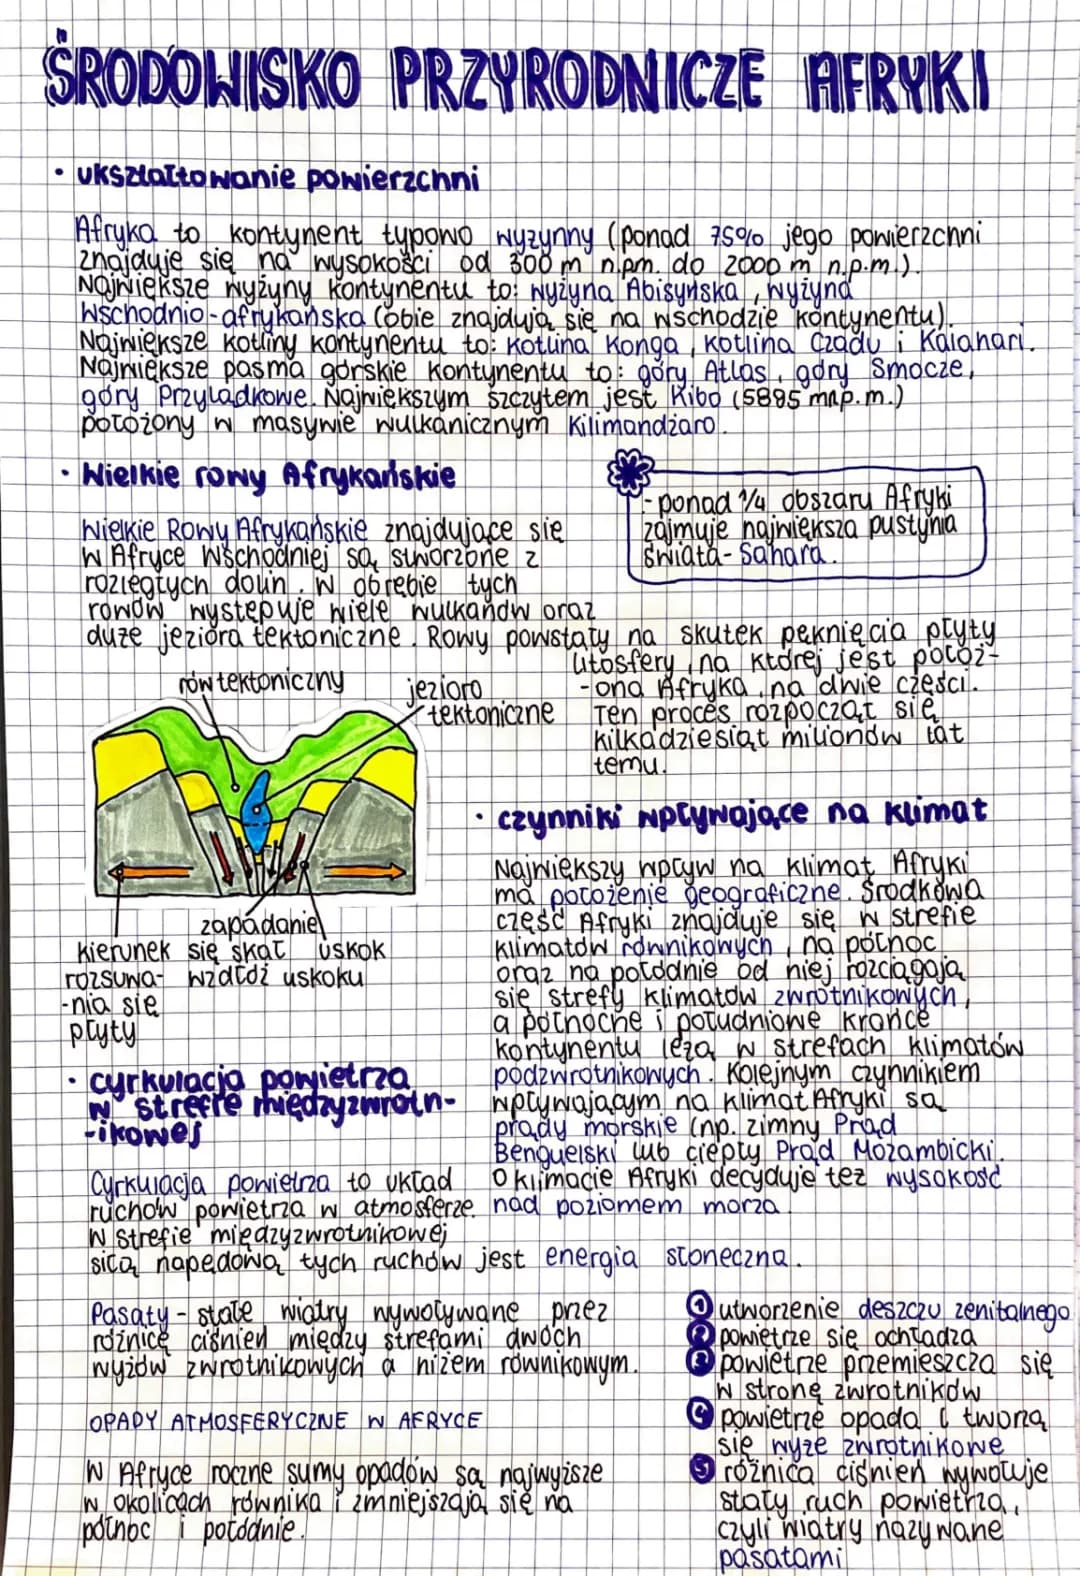 ŚRODOWISKO PRZYRODNICZE AFRYKI
• ukształtowanie powierzchni
Afryka to kontynent typowo wyżynny (ponad 75% jego powierzchni
znajduje się na wysokości od 300 m n.p.m. do 2000 m n.p.m.).
Największe wyżyny kontynentu to: wyżyna Abisyńska, wyżyna
Wschodnio-afrykańska (obie znajdują się na wschodzie kontynentu).
Największe kotliny kontynentu to: kotlina Konga, kotlina Czadu i Kalahari.
Największe pasma górskie kontynentu to: góry Atlas, góry Smocze,
góry Przylądkowe. Największym szczytem jest Kibo (5895 m n.p.m.)
położony w masywie wulkanicznym Kilimandżaro.
• Wielkie rowy Afrykańskie
- ponad 1/4 obszaru Afryki
zajmuje największa pustynia
świata - Sahara.
Wielkie Rowy Afrykańskie znajdujące się
w Afryce Wschodniej są stworzone z
rozległych dolin. W obrębie tych
rowów występuje wiele wulkanów oraz
duże jeziora tektoniczne. Rowy powstały na skutek pęknięcia płyty
litosfery, na której jest położ-
-ona Afryka, na dwie części.
Ten proces rozpoczął się
kilkadziesiąt milionów lat
temu.
rów tektoniczny
jezioro
tektoniczne
kierunek
rozsuwa-
-nia się
płyty
zapadanie
się skał
wzdłóż uskoku
uskok
• czynniki wpływające na klimat
Największy wpływ na klimat Afryki
ma położenie geograficzne. Środkowa
część Afryki znajduje się w strefie
klimatów równikowych, na północ
oraz na połódnie od niej rozciągają
się strefy klimatów zwrotnikowych,
a północne i południowe krańce
kontynentu leżą w strefach klimatów
podzwrotnikowych. Kolejnym czynnikiem
wpływającym na klimat Afryki są
prądy morskie (np. zimny Prąd
Benguelski lub ciepły Prąd Mozambicki.
O klimacie Afryki decyduje też wysokość
nad poziomem morza.
• cyrkulacja powietrza
w strefie międzyzwrotn-
-ikowej
Cyrkulacja powietrza to układ
ruchów powietrza w atmosferze.
W strefie międzyzwrotnikowej
siłą napędową tych ruchów jest energia słoneczna.
Pasaty - stałe wiatry wywoływane przez
różnicę ciśnień między strefami dwóch
wyżów zwrotnikowych a niżem równikowym.
OPADY ATMOSFERYCZNE W AFRYCE
W Afryce roczne sumy opadów są najwyższe
w okolicach równika i zmniejszają się na
północ i połódnie.
1 utworzenie deszczu zenitalnego
2 powietrze się ochładza
3 powietrze przemieszcza się
w stronę zwrotników
4 powietrze opada i tworzą
się wyże zwrotnikowe
5 różnica ciśnień wywołuje
stały ruch powietrza,
czyli wiatry nazywane
pasatami